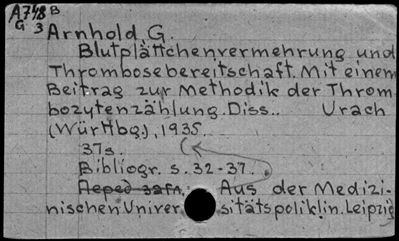 A748 B
G 3
Arnhold, G.
Blutplättchenvermehrung und
Thrombosebereitschaft. Mit einem
Beitrag zur Methodik der Throm-
bozytenzählung. Diss.. Urach
(Württbg.), 1935.
37s.
Bibliogr. s. 32-37.
Перед загл. Aus der Medizi-
nischen Univer sitätspoliklin. Leipzig